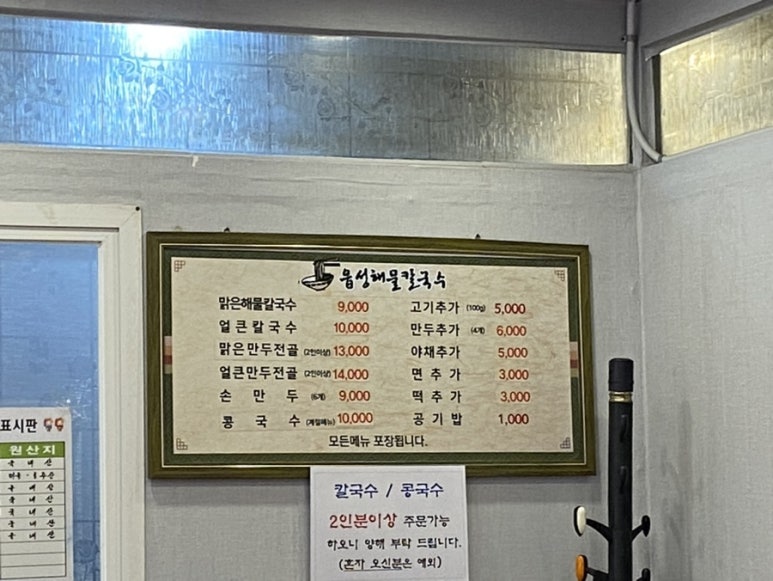 음성해물칼국수
맑은해물칼국수 9,000
얼큰칼국수 10,000
맑은만두전골 (2인이상) 13,000
얼큰만두전골 (2인이상) 14,000
손만두 (6개) 9,000
콩국수 (계절메뉴) 10,000
고기추가 (100g) 5,000
만두추가 (4개) 6,000
야채추가 5,000
면추가 3,000
떡추가 3,000
공기밥 1,000
모든메뉴 포장됩니다.
칼국수 / 콩국수
2인분이상 주문가능
하오니 양해 부탁 드립니다.
(혼자 오신분은 예외)
표시판
원산지
국내산
국내산
국내산
국내산
국내산
국내산